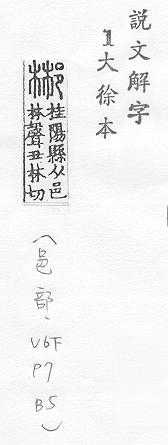 説文解字
1大徐本
郴 桂陽縣从邑
林聲丑林切
(邑部、V6下
P7
B5)